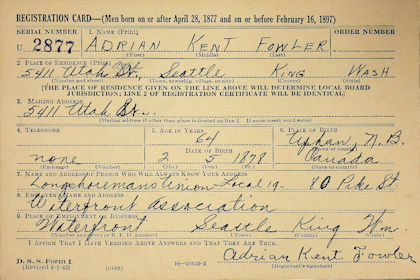 REGISTRATION CARD—(Men born on or after April 28, 1877 and on or before February 16, 1897)
SERIAL NUMBER 1. NAME (Print) ORDER NUMBER
U 2877 ADRIAN KENT FOWLER
(First) (Middle) (Last)
2. PLACE OF RESIDENCE (Print)
5411 Utah St., Seattle KING WASH
(Number and street) (Town, township, village, or city) (County) (State)
[THE PLACE OF RESIDENCE GIVEN ON THE LINE ABOVE WILL DETERMINE LOCAL BOARD
JURISDICTION; LINE 2 OF REGISTRATION CERTIFICATE WILL BE IDENTICAL]
3. MAILING ADDRESS
5411 Utah St.
[Mailing address if other than place indicated on line 2. If same insert word same]
4. TELEPHONE 5. AGE IN YEARS 6. PLACE OF BIRTH
64 N.B.
DATE OF BIRTH
none 2 5 1878 Canada
(Exchange) (Number) (Mo.) (Day) (Yr.) (State or country)
7. NAME AND ADDRESS OF PERSON WHO WILL ALWAYS KNOW YOUR ADDRESS
Longshoremans Union-Local 19- 80 Pike St.
8. EMPLOYER'S NAME AND ADDRESS
Waterfront Association
9. PLACE OF EMPLOYMENT OR BUSINESS
Waterfront Seattle King Wn.
(Number and street or R. F. D. number) (Town) (County) (State)
I AFFIRM THAT I HAVE VERIFIED ABOVE ANSWERS AND THAT THEY ARE TRUE.
D. S. S. Form 1 Adrian Kent Fowler
(Revised 4-1-42) (over) 16—21630-2 (Registrant's signature)